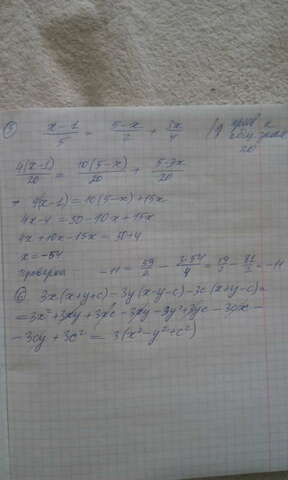 5) (x-1)/5 = (5-x)/2 + 3x/4 /
20
4(x-1)/20 = 10(5-x)/20 + 5·3x/20
4(x-1) = 10(5-x) + 15x
4x-4 = 50-10x+15x
4x+10x-15x = 50+4
x = -54
проверка -11 = 59/2 - 3·54/4 = 59/2 - 81/2 = -11
6) 3x(x+y+c) - 3y(x-y-c) - 3c(x+y-c) =
= 3x² + 3xy + 3xc - 3xy + 3y² + 3yc - 3cx -
- 3cy + 3c² = 3(x² - y² + c²)